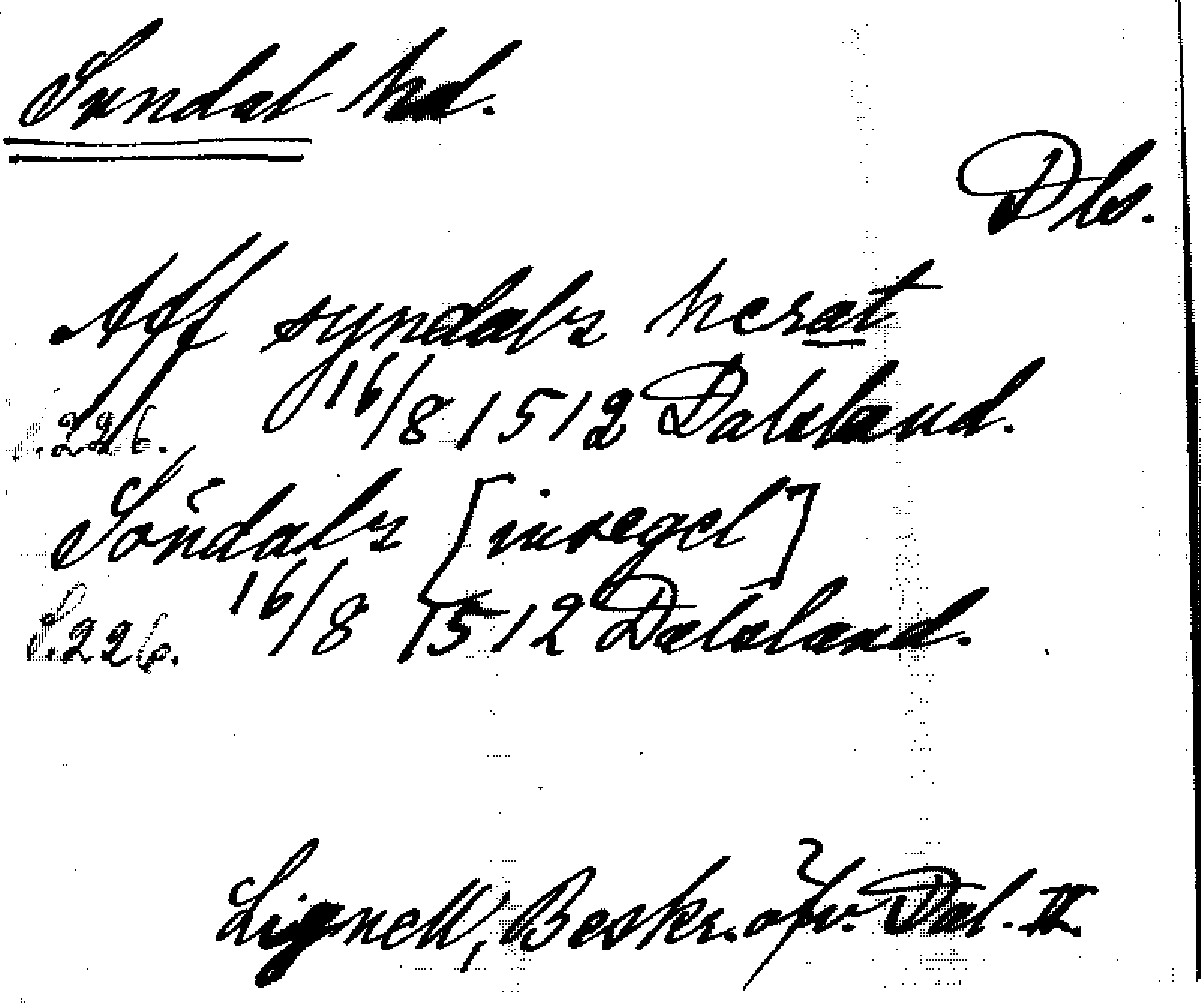 Sundal hd.
Dls.
Aff syndalz heræt
S. 226. 16/8 1512 Dalsland.
Söndalz [insegel]
S. 226. 16/8 1512 Dalsland.
Lignell, Beskr. öfv. Dal. II.